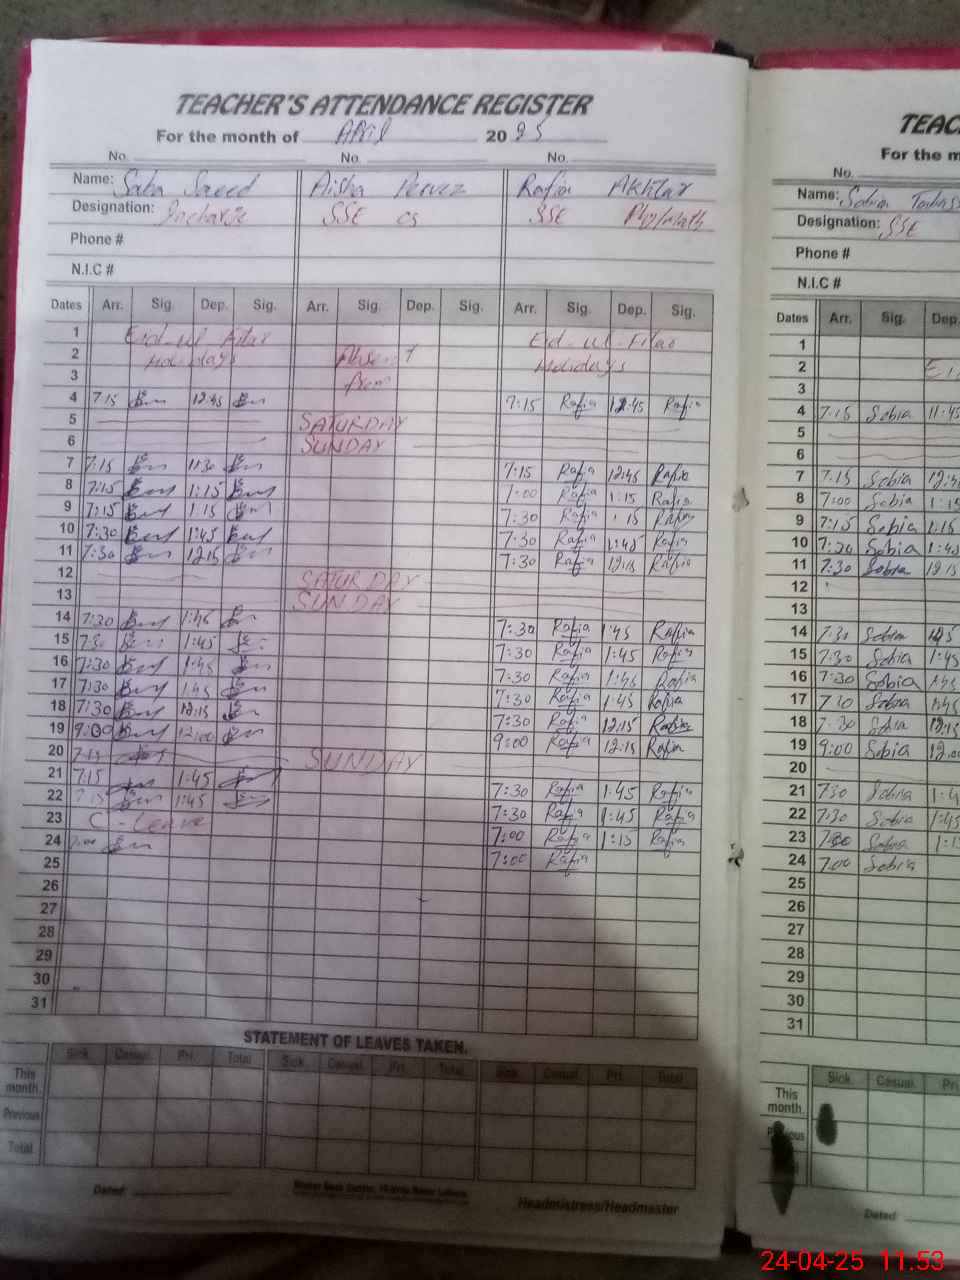 TEACHER'S ATTENDANCE REGISTER
For the month of April 2025
No. No. No.
Name: Saba Saeed Aisha Pervez Rafia Akhtar
Designation: Incharge SSE CS SSE Phy/Math
Phone #
N.I.C #
Dates Arr. Sig. Dep. Sig. Arr. Sig. Dep. Sig. Arr. Sig. Dep. Sig.
1 Eid-ul-Fitar Eid-ul-Fitar
2 Holidays Absent Holidays
3 from
4 7:15 12:45 7:15 Rafia 12:45 Rafia
5 SATURDAY
6 SUNDAY
7 7:15 11:30 7:15 Rafia 12:45 Rafia
8 7:15 1:15 7:00 Rafia 1:15 Rafia
9 7:15 1:15 7:30 Rafia 15 Rafia
10 7:30 1:45 7:30 Rafia 1:45 Rafia
11 7:30 12:15 7:30 Rafia 12:15 Rafia
12 SATURDAY
13 SUNDAY
14 7:30 1:45 7:30 Rafia 1:45 Rafia
15 7:30 1:45 7:30 Rafia 1:45 Rafia
16 7:30 1:45 7:30 Rafia 1:45 Rafia
17 7:30 1:45 7:30 Rafia 1:45 Rafia
18 7:30 12:15 7:30 Rafia 12:15 Rafia
19 9:00 12:00 9:00 Rafia 12:15 Rafia
20 7:15 SUNDAY
21 7:15 1:45 7:30 Rafia 1:45 Rafia
22 7:15 1:45 7:30 Rafia 1:45 Rafia
23 C-Leave 7:00 Rafia 1:15 Rafia
24 7:00 7:00 Rafia
25
26
27
28
29
30
31
STATEMENT OF LEAVES TAKEN.
Sick. Casual. Pri. Total Sick. Casual. Pri. Total Sick. Casual. Pri. Total
This month.
Previous
Total
Dated:
Headmistress/Headmaster
TEAC
For the m
No.
Name: Sobia
Designation: SSE
Phone #
N.I.C #
Dates Arr. Sig. Dep.
1
2
3
4 7:15 Sobia 11:45
5
6
7 7:15 Sobia 12:4
8 7:00 Sobia 1:15
9 7:15 Sobia 1:15
10 7:30 Sobia 1:45
11 7:30 Sobia 12:15
12
13
14 7:30 Sobia
15 7:30 Sobia 1:45
16 7:30 Sobia 1:45
17 7:30 Sobia 1:45
18 7:30 Sobia 12:15
19 9:00 Sobia 12:00
20
21 7:30 Sobia 1:4
22 7:30 Sobia 1:45
23 7:00 Sobia 1:1
24 7:00 Sobia
25
26
27
28
29
30
31
Sick Casual. Pri
This month.
Dated:
24-04-25 11.53